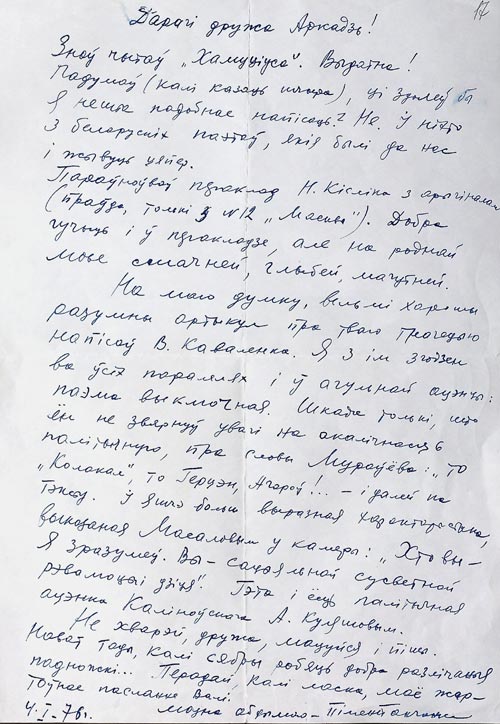 17
Дарагі дружа Аркадзь!
Зноў чытаў „Хамуціуса“. Выдатна!
Падумаў (калі казаць шчыра), ці здолеў бы
я нешта падобнае напісаць? Не. І ніхто
з беларускіх паэтаў, якія былі да нас
і жывуць цяпер.
Параўноўваў пераклад Н. Кісліка з арыгіналам
(праўда, толькі з №12 „Масквы“). Добра
гучыць і ў перакладзе, але на роднай
мове смачней, глыбей, магутней.
На маю думку, вельмі харошы
разумны артыкул пра тваю трагедыю
напісаў В. Каваленка. Я з ім згодзен
ва ўсіх параллях і ў агульнай ацэнцы:
паэма выключная. Шкада толькі, што
ён не звярнуў увагі на акалічнасць
палітычную, пра словы Мураўёва: „То
„Колокол“, то Герцэн, Агароў!... – і далей па
тэксту. І яшчэ больш выразная характарыстыка,
выказаная Масаловым у камеры: „Хто вы –
Я зразумеў. Вы – сацыяльнай сусветной
рэвалюцыі дзіця“. Гэта і ёсць палітычная
ацэнка Каліноўскага А. Куляшовым.
Не хварэй, дружа, мацуйся і пішы.
Нават тады, калі сябры робяць добра разлічаныя
падножкі... Перадай, калі ласка, маё жар-
тоўнае пасланне Валі.
4.I.76г. Моцна абдымаю – Пімен Панчанка